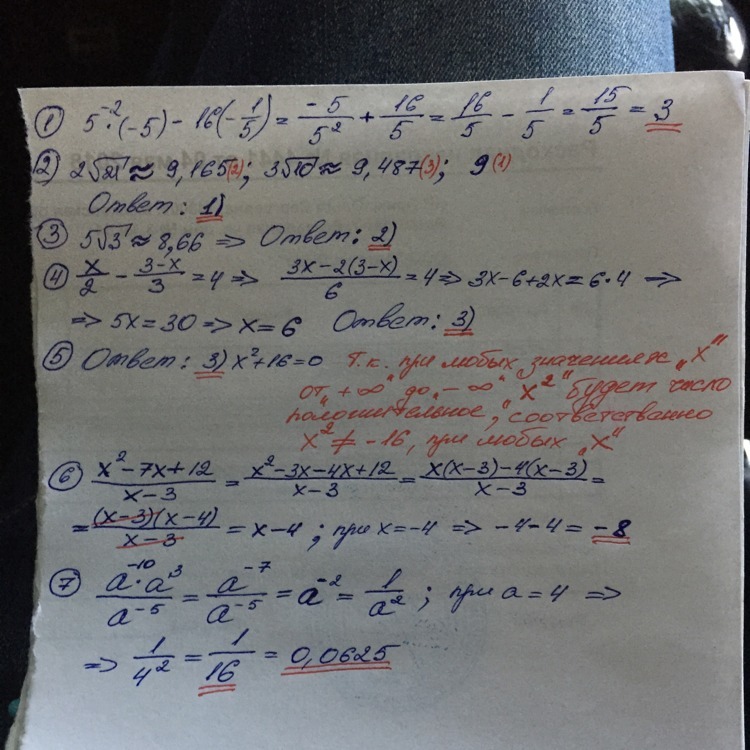 ① 5⁻²·(-5) - 16(-1/5) = -5/5² + 16/5 = 16/5 - 1/5 = 15/5 = 3
② 2√21 ≈ 9,165(2); 3√10 ≈ 9,487(3); 9(1)
Ответ: 1)
③ 5√3 ≈ 8,66 => Ответ: 2)
④ x/2 - (3-x)/3 = 4 => (3x-2(3-x))/6 = 4 => 3x-6+2x=6·4 =>
=> 5x=30 => x=6 Ответ: 3)
⑤ Ответ: 3) x²+16=0 т.к. при любых значениях „x"
от „+∞" до „-∞" „x²" будет число
положительное, соответственно
x² ≠ -16, при любых „x"
⑥ (x²-7x+12)/(x-3) = (x²-3x-4x+12)/(x-3) = (x(x-3)-4(x-3))/(x-3) =
= ((x-3)(x-4))/(x-3) = x-4; при x=-4 => -4-4 = -8
⑦ (a⁻¹⁰·a³)/a⁻⁵ = a⁻⁷/a⁻⁵ = a⁻² = 1/a²; при a=4 =>
=> 1/4² = 1/16 = 0,0625